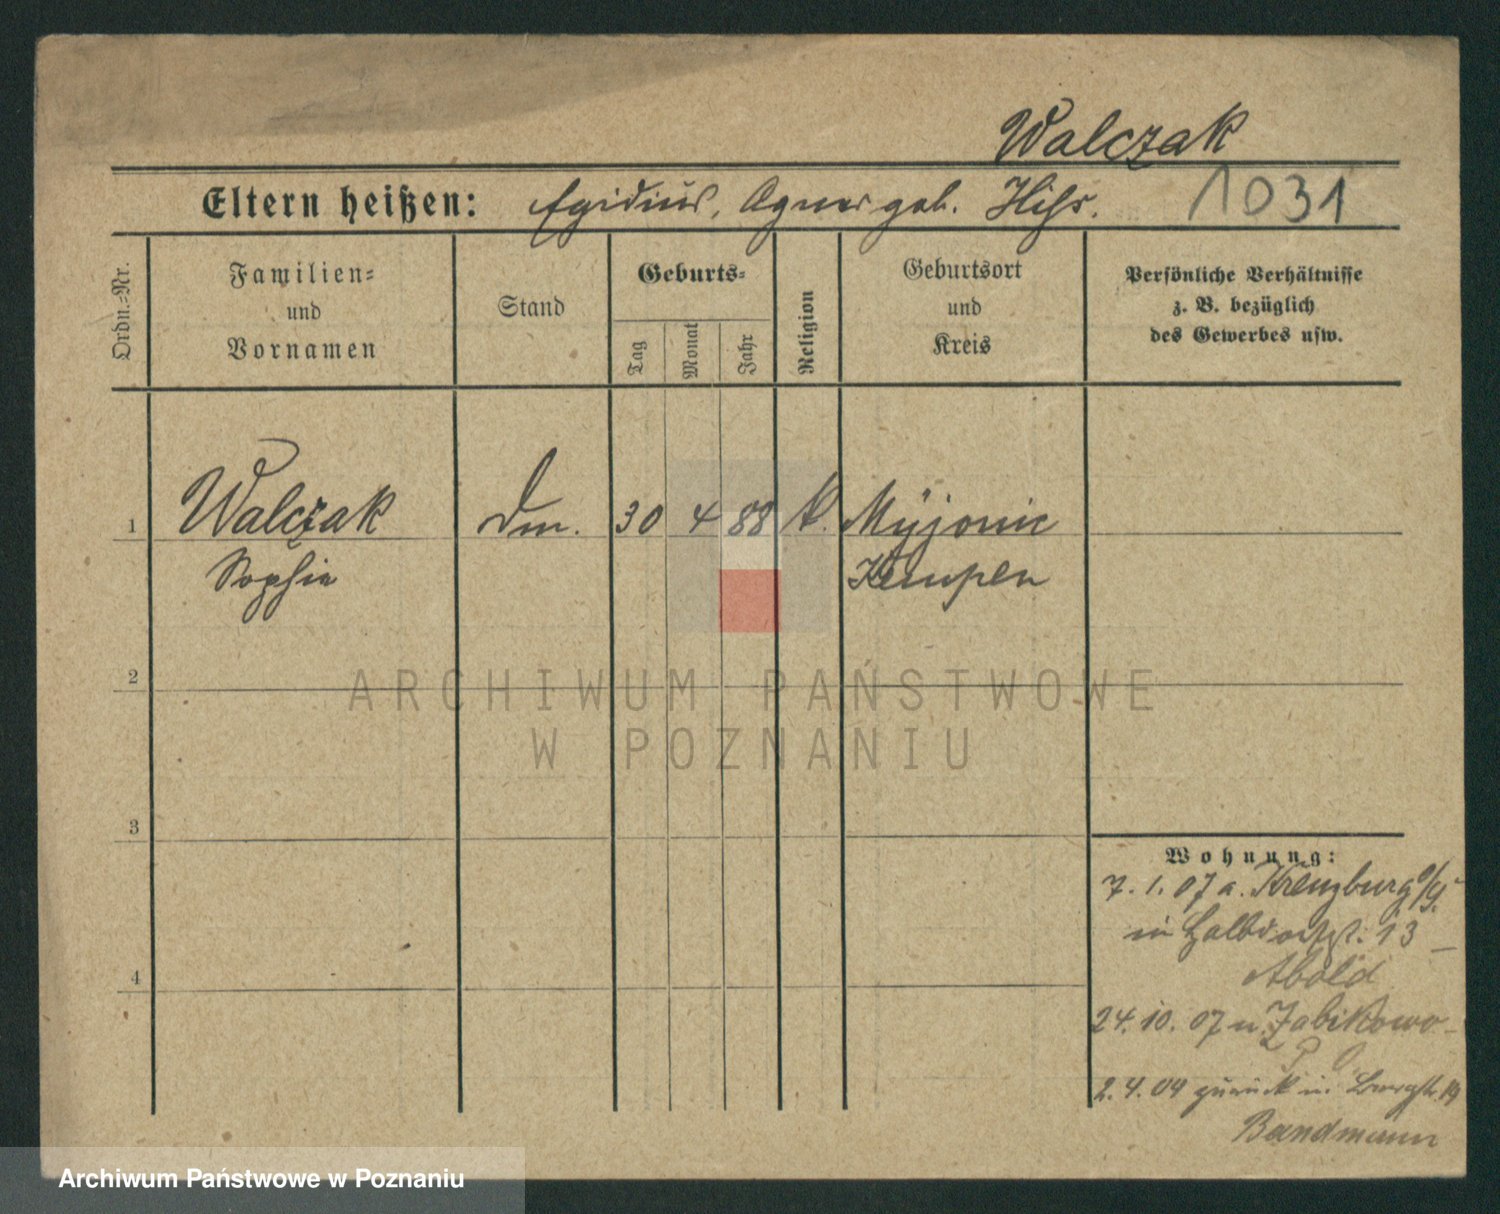 Walczak
Eltern heißen: Egidius, Agnes geb. Hihs. 1031
Ordn.-Nr.
Familien-
und
Vornamen
Stand
Geburts-
Tag
Monat
Jahr
Religion
Geburtsort
und
Kreis
Persönliche Verhältnisse
z. B. bezüglich
des Gewerbes usw.
1 Walczak Dm. 30 4 88 k. Myjonic
Sophie Kempen
2
ARCHIWUM PAŃSTWOWE
W POZNANIU
3
Wohnung:
7. 1. 07 a. Kreuzburg O/S.
in Halbdorfstr. 13
Abold
4
24. 10. 07 n. Zabikowo
2. 4. 09 zurück n. Burgstr. 19
Bandmann
Archiwum Państwowe w Poznaniu